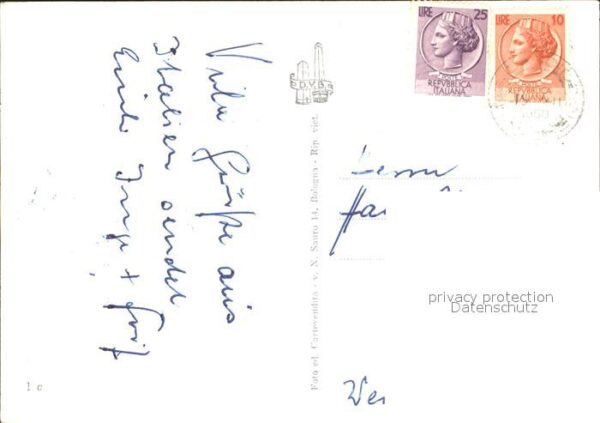 Viele Grüße aus
Italien sendet
Euch Inge + Fritz
LIRE 25
POSTE
REPVBBLICA
ITALIANA
LIRE 10
POSTE
REPVBBLICA
ITALIANA
D.V.B.
Foto ed. Cartovendita - v. N. Sauro 14, Bologna - Rip. viet.
Herrn
Ha
privacy protection
Datenschutz
Wer
1 c